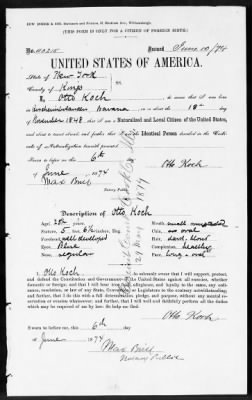 (THIS FORM IS ONLY FOR A CITIZEN OF FOREIGN BIRTH.)
No. 40215 Issued June 10/74
UNITED STATES OF AMERICA.
State of New York
County of Kings
I, Otto Koch do swear that I was born
Bavaria on or about the 18th day
of November 1848, that I am a Naturalized and Local Citizen of the United States,
and about to travel abroad; and further that I am the Identical Person described in the Certi-
ficate of Naturalization herewith presented.
Sworn to before me, this 6th
day
of June 1874
Otto Koch
Max Brill
Notary Public.
Description of Otto Koch
Age, 25 years, Mouth, small
Stature, 5 feet, inches, Eng. Chin, oval
Forehead, well developed Hair, dark blond
Eyes, Blue Complexion, healthy
Nose, regular Face, long oval
I, Otto Koch do solemnly swear that I will support, protect,
and defend the Constitution and Government of the United States against all enemies, whether
domestic or foreign; and that I will bear true faith, allegiance, and loyalty to the same, any ordi-
nance, resolution, or law of any State, Convention, or Legislature to the contrary notwithstanding;
and further, that I do this with a full determination, pledge, and purpose, without any mental reser-
vation or evasion whatsoever; and further, that I will well and faithfully perform all the duties
which may be required of me by law. So help me God.
Otto Koch
Sworn to before me, this 6th day
of June 1874
Max Brill
Notary Public